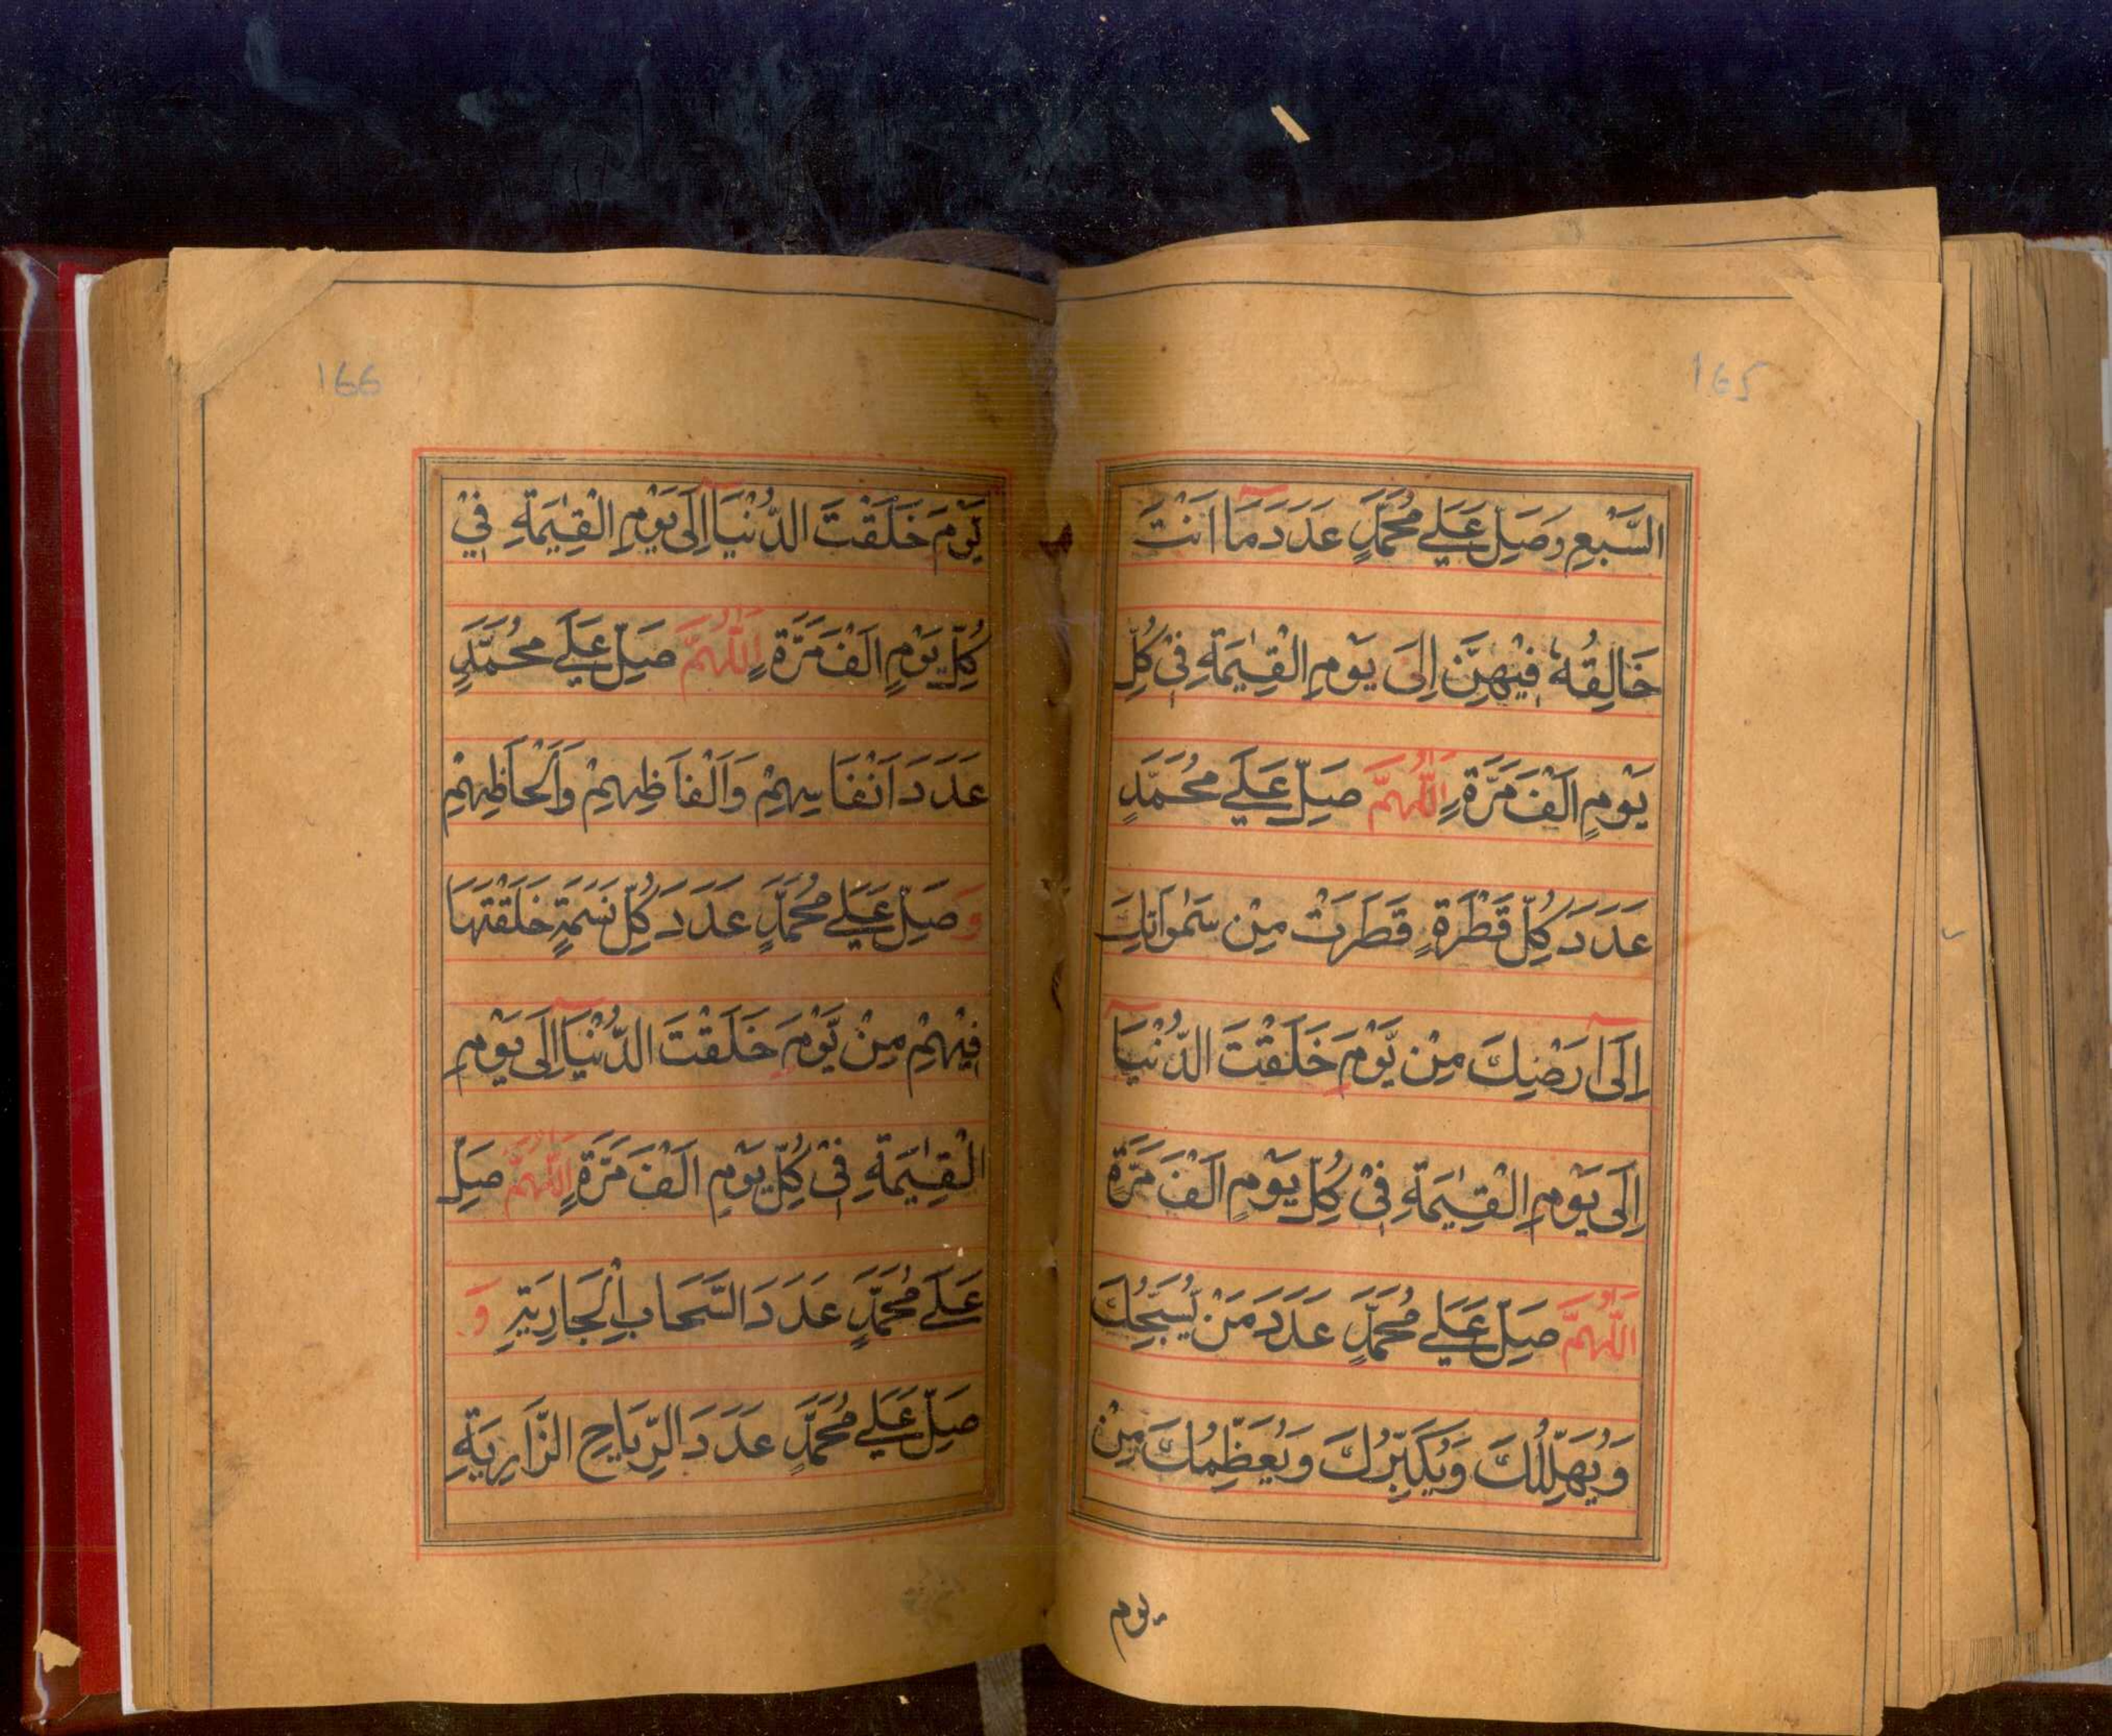 165
السَّبْعِ وَصَلِّ عَلٰے مُحَمَّدٍ عَدَدَ مَآ اَنْتَ
خَالِقُهٗ فِيْهِنَّ اِلٰى يَوْمِ الْقِيٰمَةِ فِيْ كُلِّ
يَوْمٍ اَلْفَ مَرَّةٍ اَللّٰهُمَّ صَلِّ عَلٰے مُحَمَّدٍ
عَدَدَ كُلِّ قَطْرَةٍ قَطَرَتْ مِنْ سَمٰوَاتِكَ
اِلٰٓى اَرْضِكَ مِنْ يَّوْمِ خَلَقْتَ الدُّنْيَآ
اِلٰى يَوْمِ الْقِيٰمَةِ فِيْ كُلِّ يَوْمٍ اَلْفَ مَرَّةٍ
اَللّٰهُمَّ صَلِّ عَلٰے مُحَمَّدٍ عَدَدَ مَنْ يُّسَبِّحُكَ
وَيُهَلِّلُكَ وَيُكَبِّرُكَ وَيُعَظِّمُكَ مِنْ
يوم
166
يَّوْمَ خَلَقْتَ الدُّنْيَآ اِلٰى يَوْمِ الْقِيٰمَةِ فِيْ
كُلِّ يَوْمٍ اَلْفَ مَرَّةٍ اَللّٰهُمَّ صَلِّ عَلٰے مُحَمَّدٍ
عَدَدَ اَنْفَاسِهِمْ وَاَلْفَاظِهِمْ وَاَلْحَاظِهِمْ
وَ صَلِّ عَلٰے مُحَمَّدٍ عَدَدَ كُلِّ نَسَمَةٍ خَلَقْتَهَا
فِيْهِمْ مِنْ يَّوْمِ خَلَقْتَ الدُّنْيَآ اِلٰى يَوْمِ
الْقِيٰمَةِ فِيْ كُلِّ يَوْمٍ اَلْفَ مَرَّةٍ اَللّٰهُمَّ صَلِّ
عَلٰے مُحَمَّدٍ عَدَدَ السَّحَابِ الْجَارِيَةِ وَ
صَلِّ عَلٰے مُحَمَّدٍ عَدَدَ الرِّيَاحِ الزَّارِيَةِ